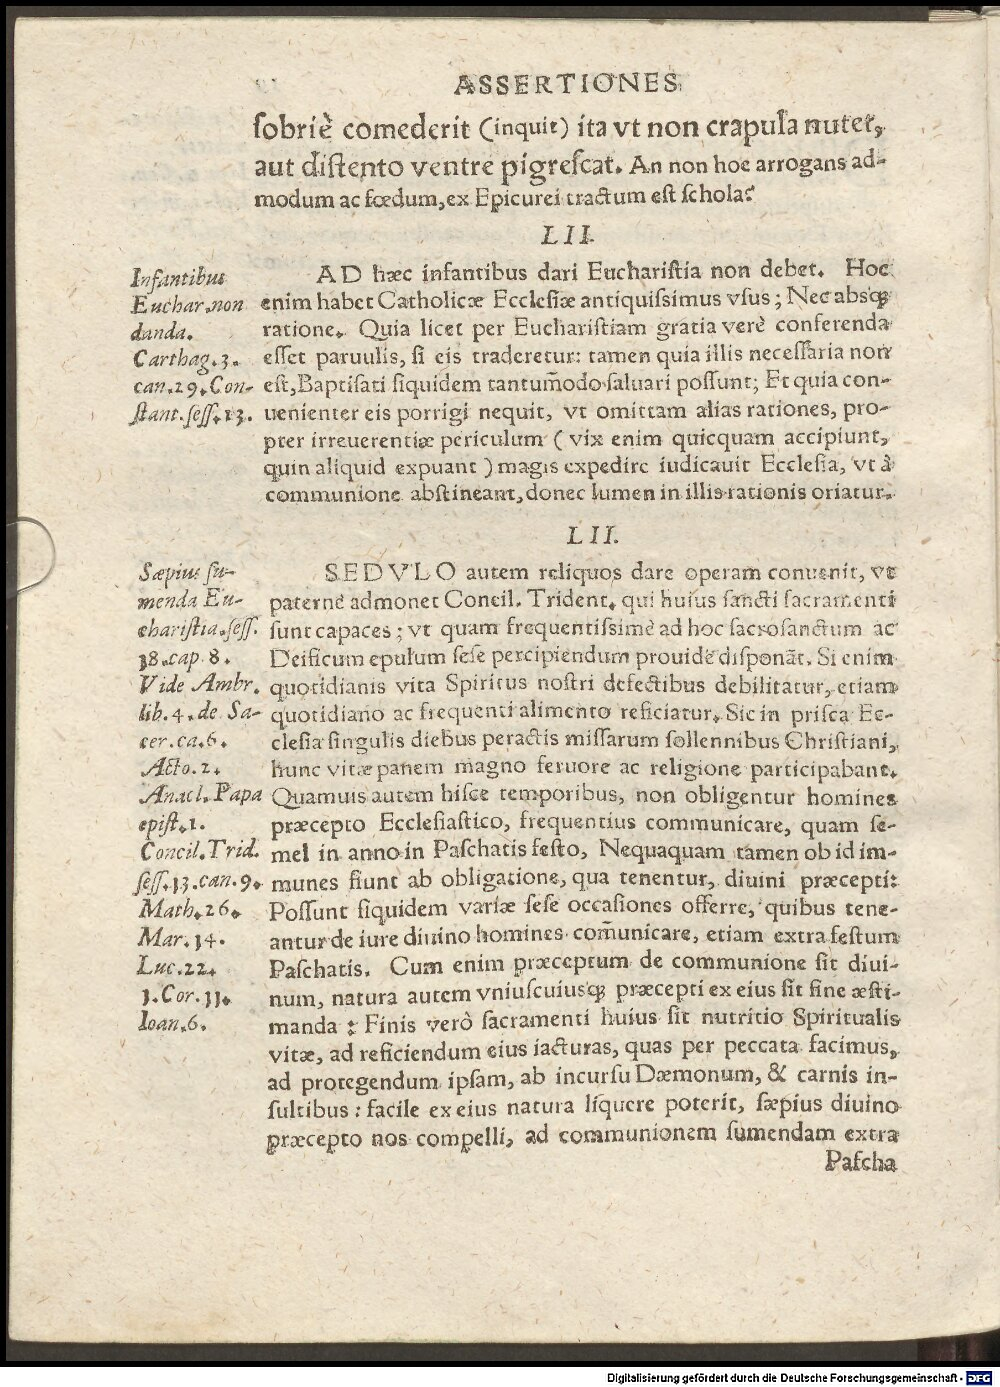 ASSERTIONES
ſobriè comederit (inquit) ita vt non crapula nutet,
aut diſtento ventre pigreſcat. An non hoc arrogans ad-
modum ac fœdum, ex Epicurei tractum eſt ſchola?
LII.
Infantibus
Euchar. non
danda.
Carthag. 3.
can. 29. Con-
ſtant. ſeſſ. 13.
AD hæc infantibus dari Euchariſtia non debet. Hoc
enim habet Catholicæ Eccleſiæ antiquiſsimus vſus; Nec absq;
ratione. Quia licet per Euchariſtiam gratia verè conferenda
eſſet paruulis, ſi eis traderetur: tamen quia illis neceſſaria non
eſt, Baptiſati ſiquidem tantum̄odo ſaluari poſſunt; Et quia con-
uenienter eis porrigi nequit, vt omittam alias rationes, pro-
pter irreuerentiæ periculum ( vix enim quicquam accipiunt,
quin aliquid expuant ) magis expedire iudicauit Eccleſia, vt à
communione abſtineant, donec lumen in illis rationis oriatur.
LII.
Sæpius ſu-
menda Eu-
chariſtia. ſeſſ.
18. cap. 8.
Vide Ambr.
lib. 4. de Sa-
cer. ca. 6.
Acto. 2.
Anacl. Papa
epiſt. 1.
Concil. Trid.
ſeſſ. 13. can. 9.
Math. 26.
Mar. 14.
Luc. 22.
1. Cor. 11.
Ioan. 6.
SEDVLO autem reliquos dare operam conuenit, vt
paternè admonet Concil. Trident. qui huius ſancti ſacramenti
ſunt capaces; vt quam frequentiſsimè ad hoc ſacroſanctum ac
Deificum epulum ſeſe percipiendum prouidè diſponāt. Si enim
quotidianis vita Spiritus noſtri defectibus debilitatur, etiam
quotidiano ac frequenti alimento reficiatur. Sic in priſca Ec-
cleſia ſingulis diebus peractis miſſarum ſollennibus Chriſtiani,
hunc vitæ panem magno feruore ac religione participabant.
Quamuis autem hiſce temporibus, non obligentur homines
præcepto Eccleſiaſtico, frequentius communicare, quam ſe-
mel in anno in Paſchatis feſto, Nequaquam tamen ob id im-
munes fiunt ab obligatione, qua tenentur, diuini præcepti:
Poſſunt ſiquidem variæ ſeſe occaſiones offerre, quibus tene-
antur de iure diuino homines com̄unicare, etiam extra feſtum
Paſchatis. Cum enim præceptum de communione ſit diui-
num, natura autem vniuſcuiusq; præcepti ex eius ſit fine æſti-
manda: Finis verò ſacramenti huius ſit nutritio Spiritualis
vitæ, ad reficiendum eius iacturas, quas per peccata facimus,
ad protegendum ipſam, ab incurſu Dæmonum, & carnis in-
ſultibus: facile ex eius natura liquere poterit, ſæpius diuino
præcepto nos compelli, ad communionem ſumendam extra
Paſcha
Digitalisierung gefördert durch die Deutsche Forschungsgemeinschaft - DFG